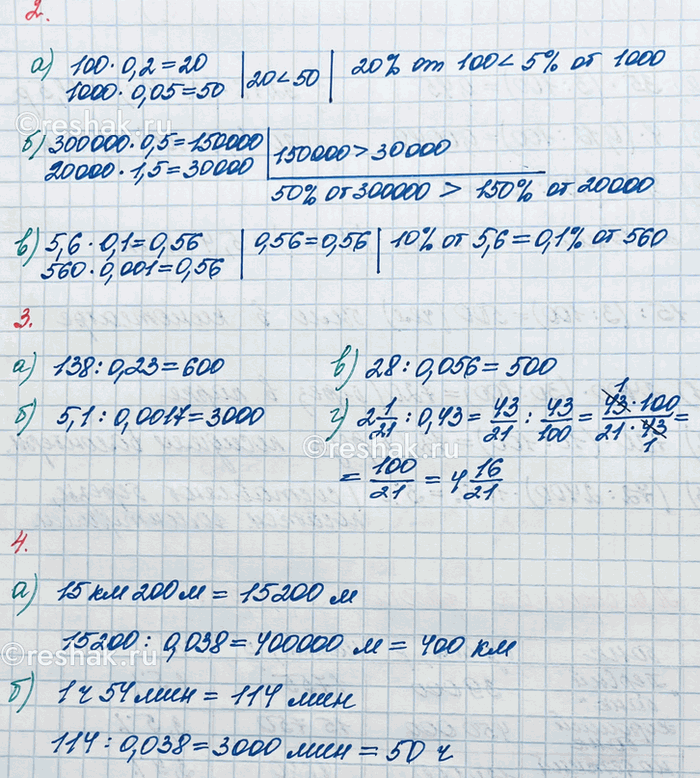 2.
а) 100 · 0,2 = 20 | 20 < 50 | 20% от 100 < 5% от 1000
1000 · 0,05 = 50
б) 300000 · 0,5 = 150000 | 150000 > 30000
20000 · 1,5 = 30000 | 50% от 300000 > 150% от 20000
в) 5,6 · 0,1 = 0,56 | 0,56 = 0,56 | 10% от 5,6 = 0,1% от 560
560 · 0,001 = 0,56
3.
а) 138 : 0,23 = 600
б) 5,1 : 0,0017 = 3000
в) 28 : 0,056 = 500
г) 2 1/21 : 0,43 = 43/21 : 43/100 = 43 · 100/21 · 43 =
1
1
= 100/21 = 4 16/21
4.
а) 15 км 200 м = 15200 м
15200 : 0,038 = 400000 м = 400 км
б) 1 ч 54 мин = 114 мин
114 : 0,038 = 3000 мин = 50 ч
©reshak.ru
©reshak.ru
©reshak.ru
©reshak.ru